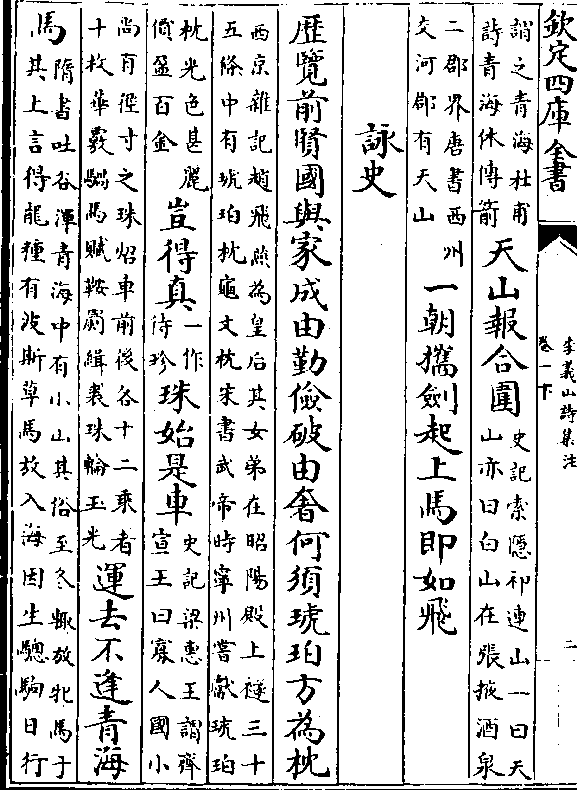 欽定四庫全書
李義山詩集注
卷一下
二
謂之青海杜甫
詩青海休傳箭
天山報合圍
史記索隱祁連山一曰天
山亦曰白山在張掖酒泉
二郡界唐書西州
交河郡有天山
一朝攜劍起上馬即如飛
詠史
歷覽前賢國與家成由勤儉破由奢何須琥珀方為枕
西京雜記趙飛燕為皇后其女弟在昭陽殿上襚三十
五條中有琥珀枕龜文枕宋書武帝時寧州嘗獻琥珀
枕光色甚麗
價盈百金
豈得真
一作
待珍
珠始是車
史記梁惠王謂齊
宣王曰寡人國小
尚有徑寸之珠炤車前後各十二乘者
十枚華覈騧馬賦鞍罽緝裘珠輪玉光
運去不逢青海
馬
隋書吐谷渾青海中有小山其俗至冬輒放牝馬于
其上言得龍種有波斯草馬放入海因生驄駒日行